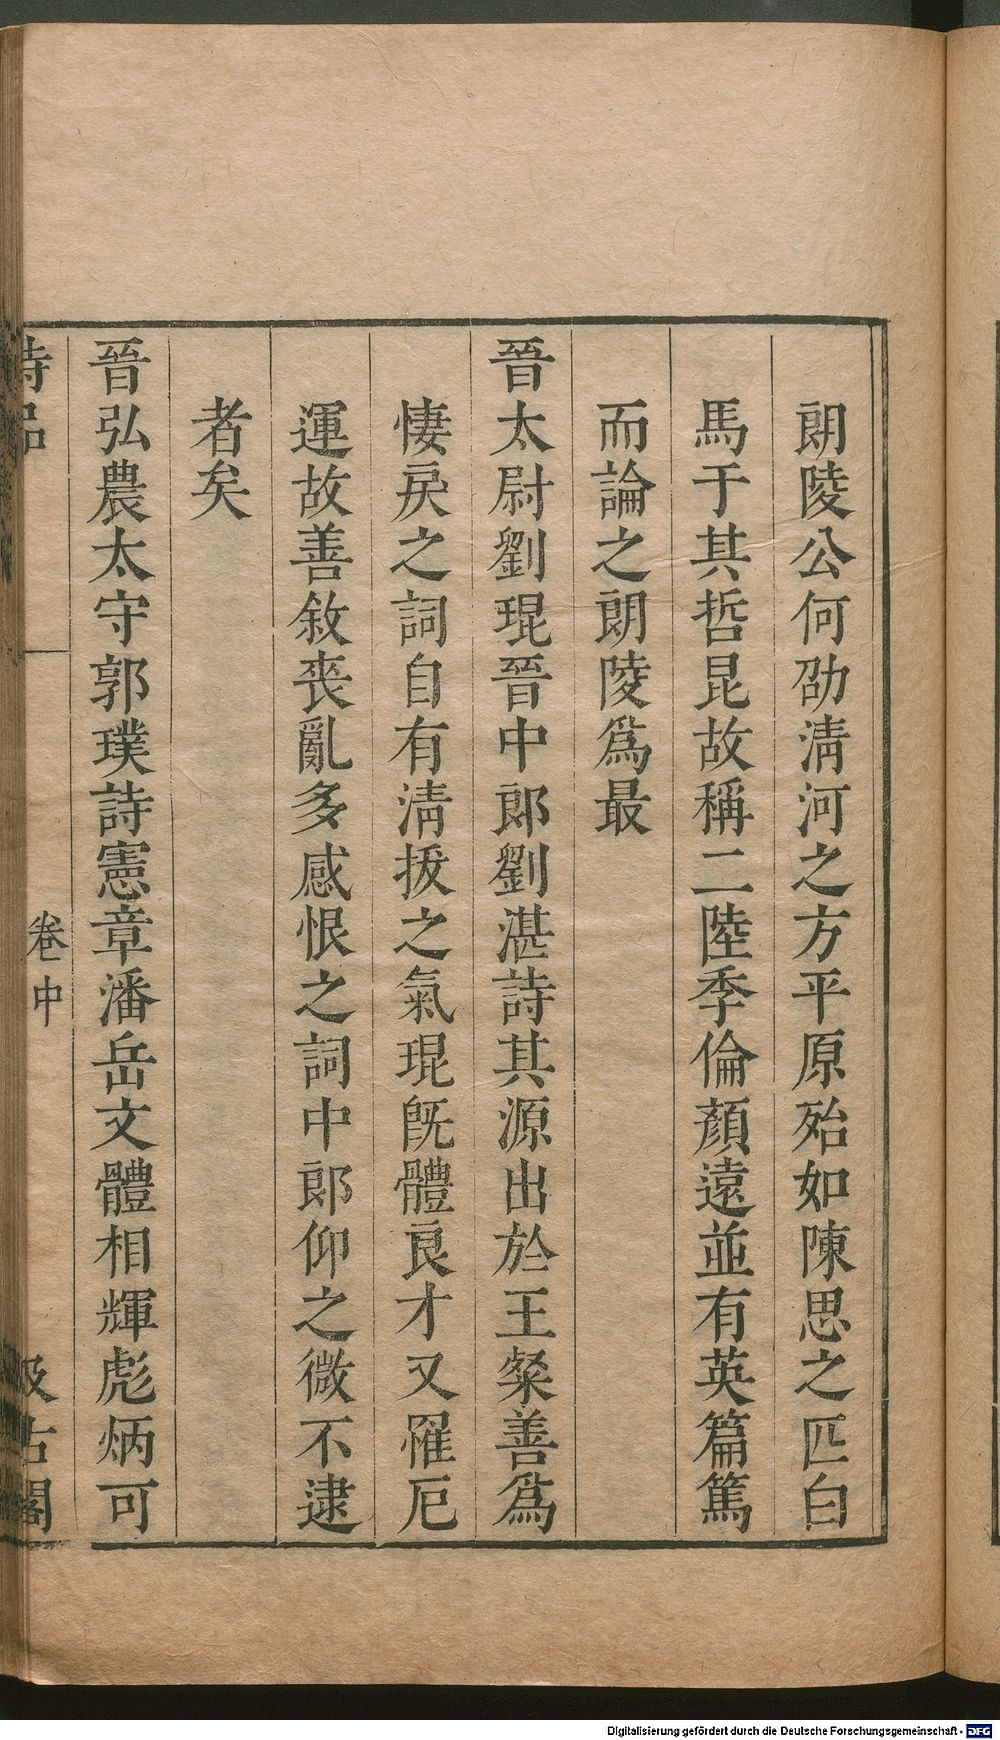 朗陵公何劭淸河之方平原殆如陳思之匹白
馬于其哲昆故稱二陸季倫顏遠並有英篇篤
而論之朗陵爲最
晉太尉劉琨晉中郎劉湛詩其源出於王粲善爲
悽戾之詞自有淸拔之氣琨旣體良才又罹厄
運故善敘喪亂多感恨之詞中郎仰之微不逮
者矣
晉弘農太守郭璞詩憲章潘岳文體相輝彪炳可
詩品
卷中
汲古閣
Digitalisierung gefördert durch die Deutsche Forschungsgemeinschaft - DFG